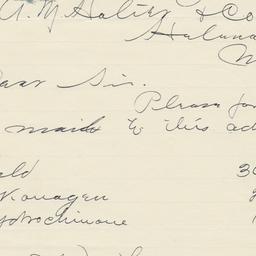 A. M. Holter & Co
Helena
M
Dear Sir.
Please for
mail to this ad
ld 30
Konogen
ydrochinone